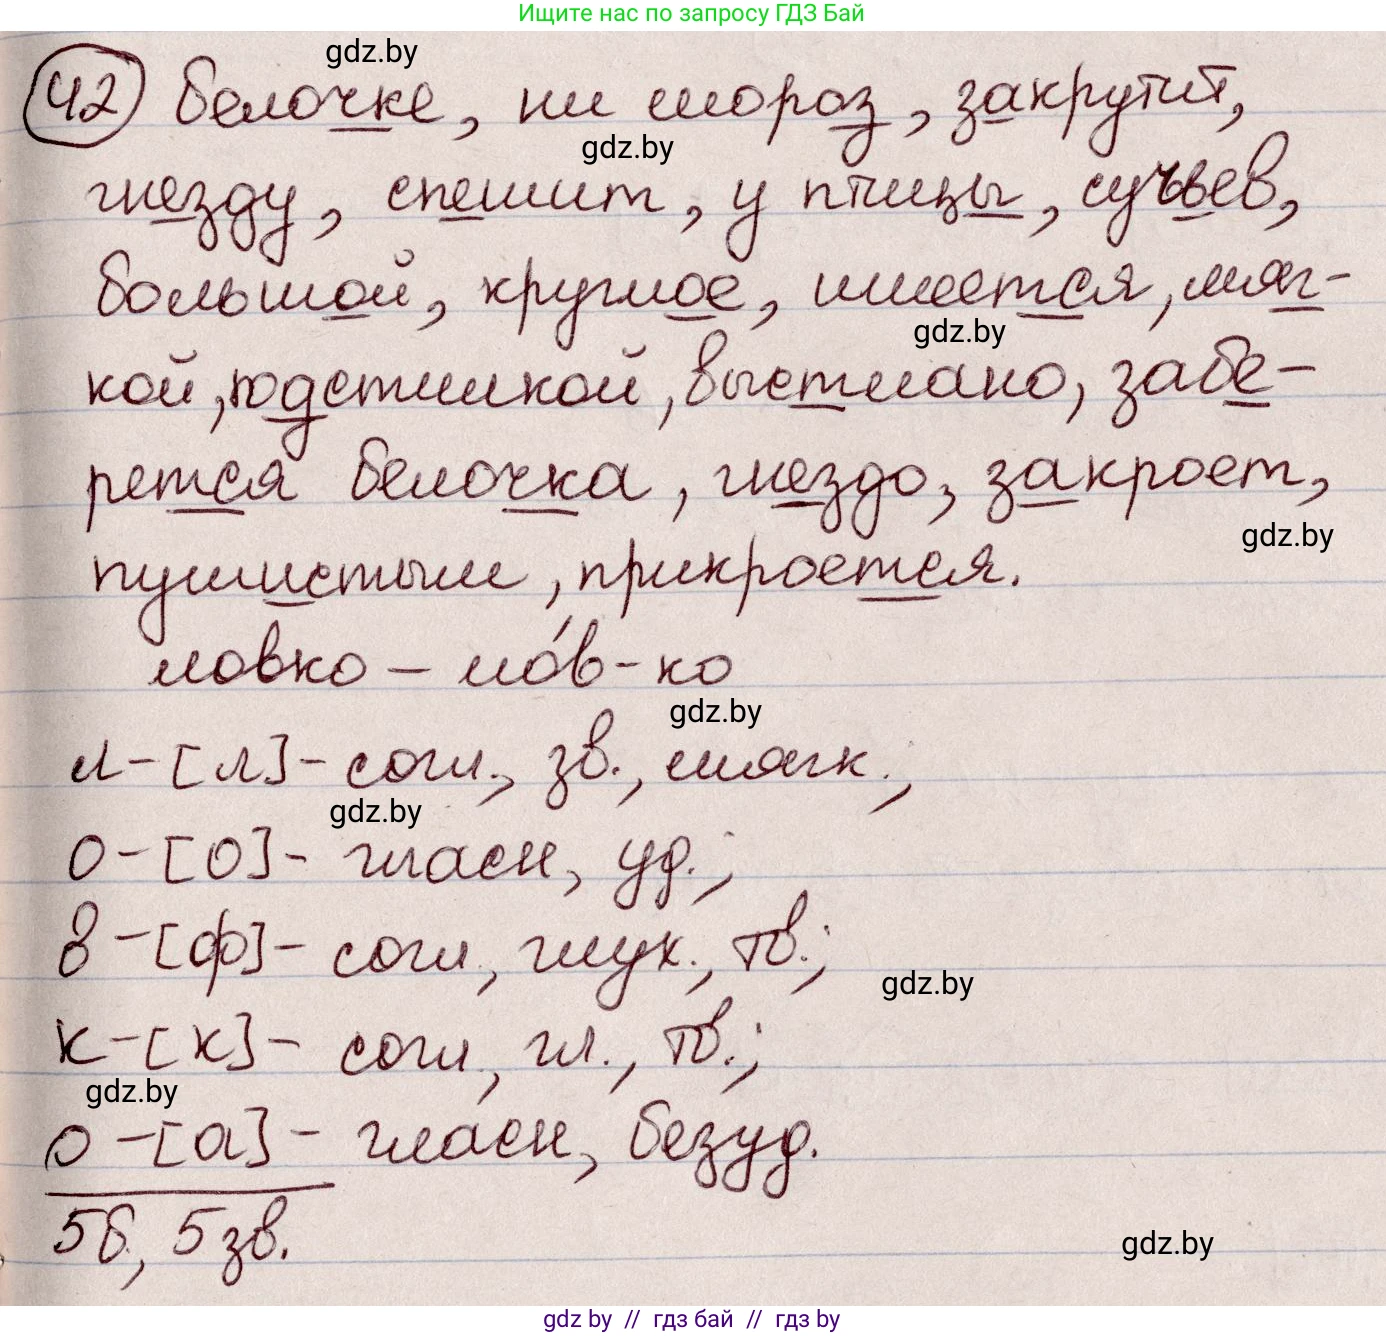 Ищите нас по запросу ГДЗ Бай
gdz.by
42 белочке, ни мороз, закрутит,
gdz.by
гнезду, спешит, у птицы, сучьев,
большой, круглое, имеется, мяг-
gdz.by
кой, подстилкой, выстлано, забе-
рется белочка, гнездо, закроет,
gdz.by
пушистым, прикроется.
ловко – ло́в-ко
gdz.by
л-[л]- согл., зв., мягк.;
gdz.by
о-[о]- гласн, уд.;
в-[ф]- согл., глух., тв.;
gdz.by
к-[к]- согл., гл., тв.;
gdz.by
о-[а]- гласн, безуд.
5б., 5зв.
gdz.by
gdz by // гдз бай // гдз by